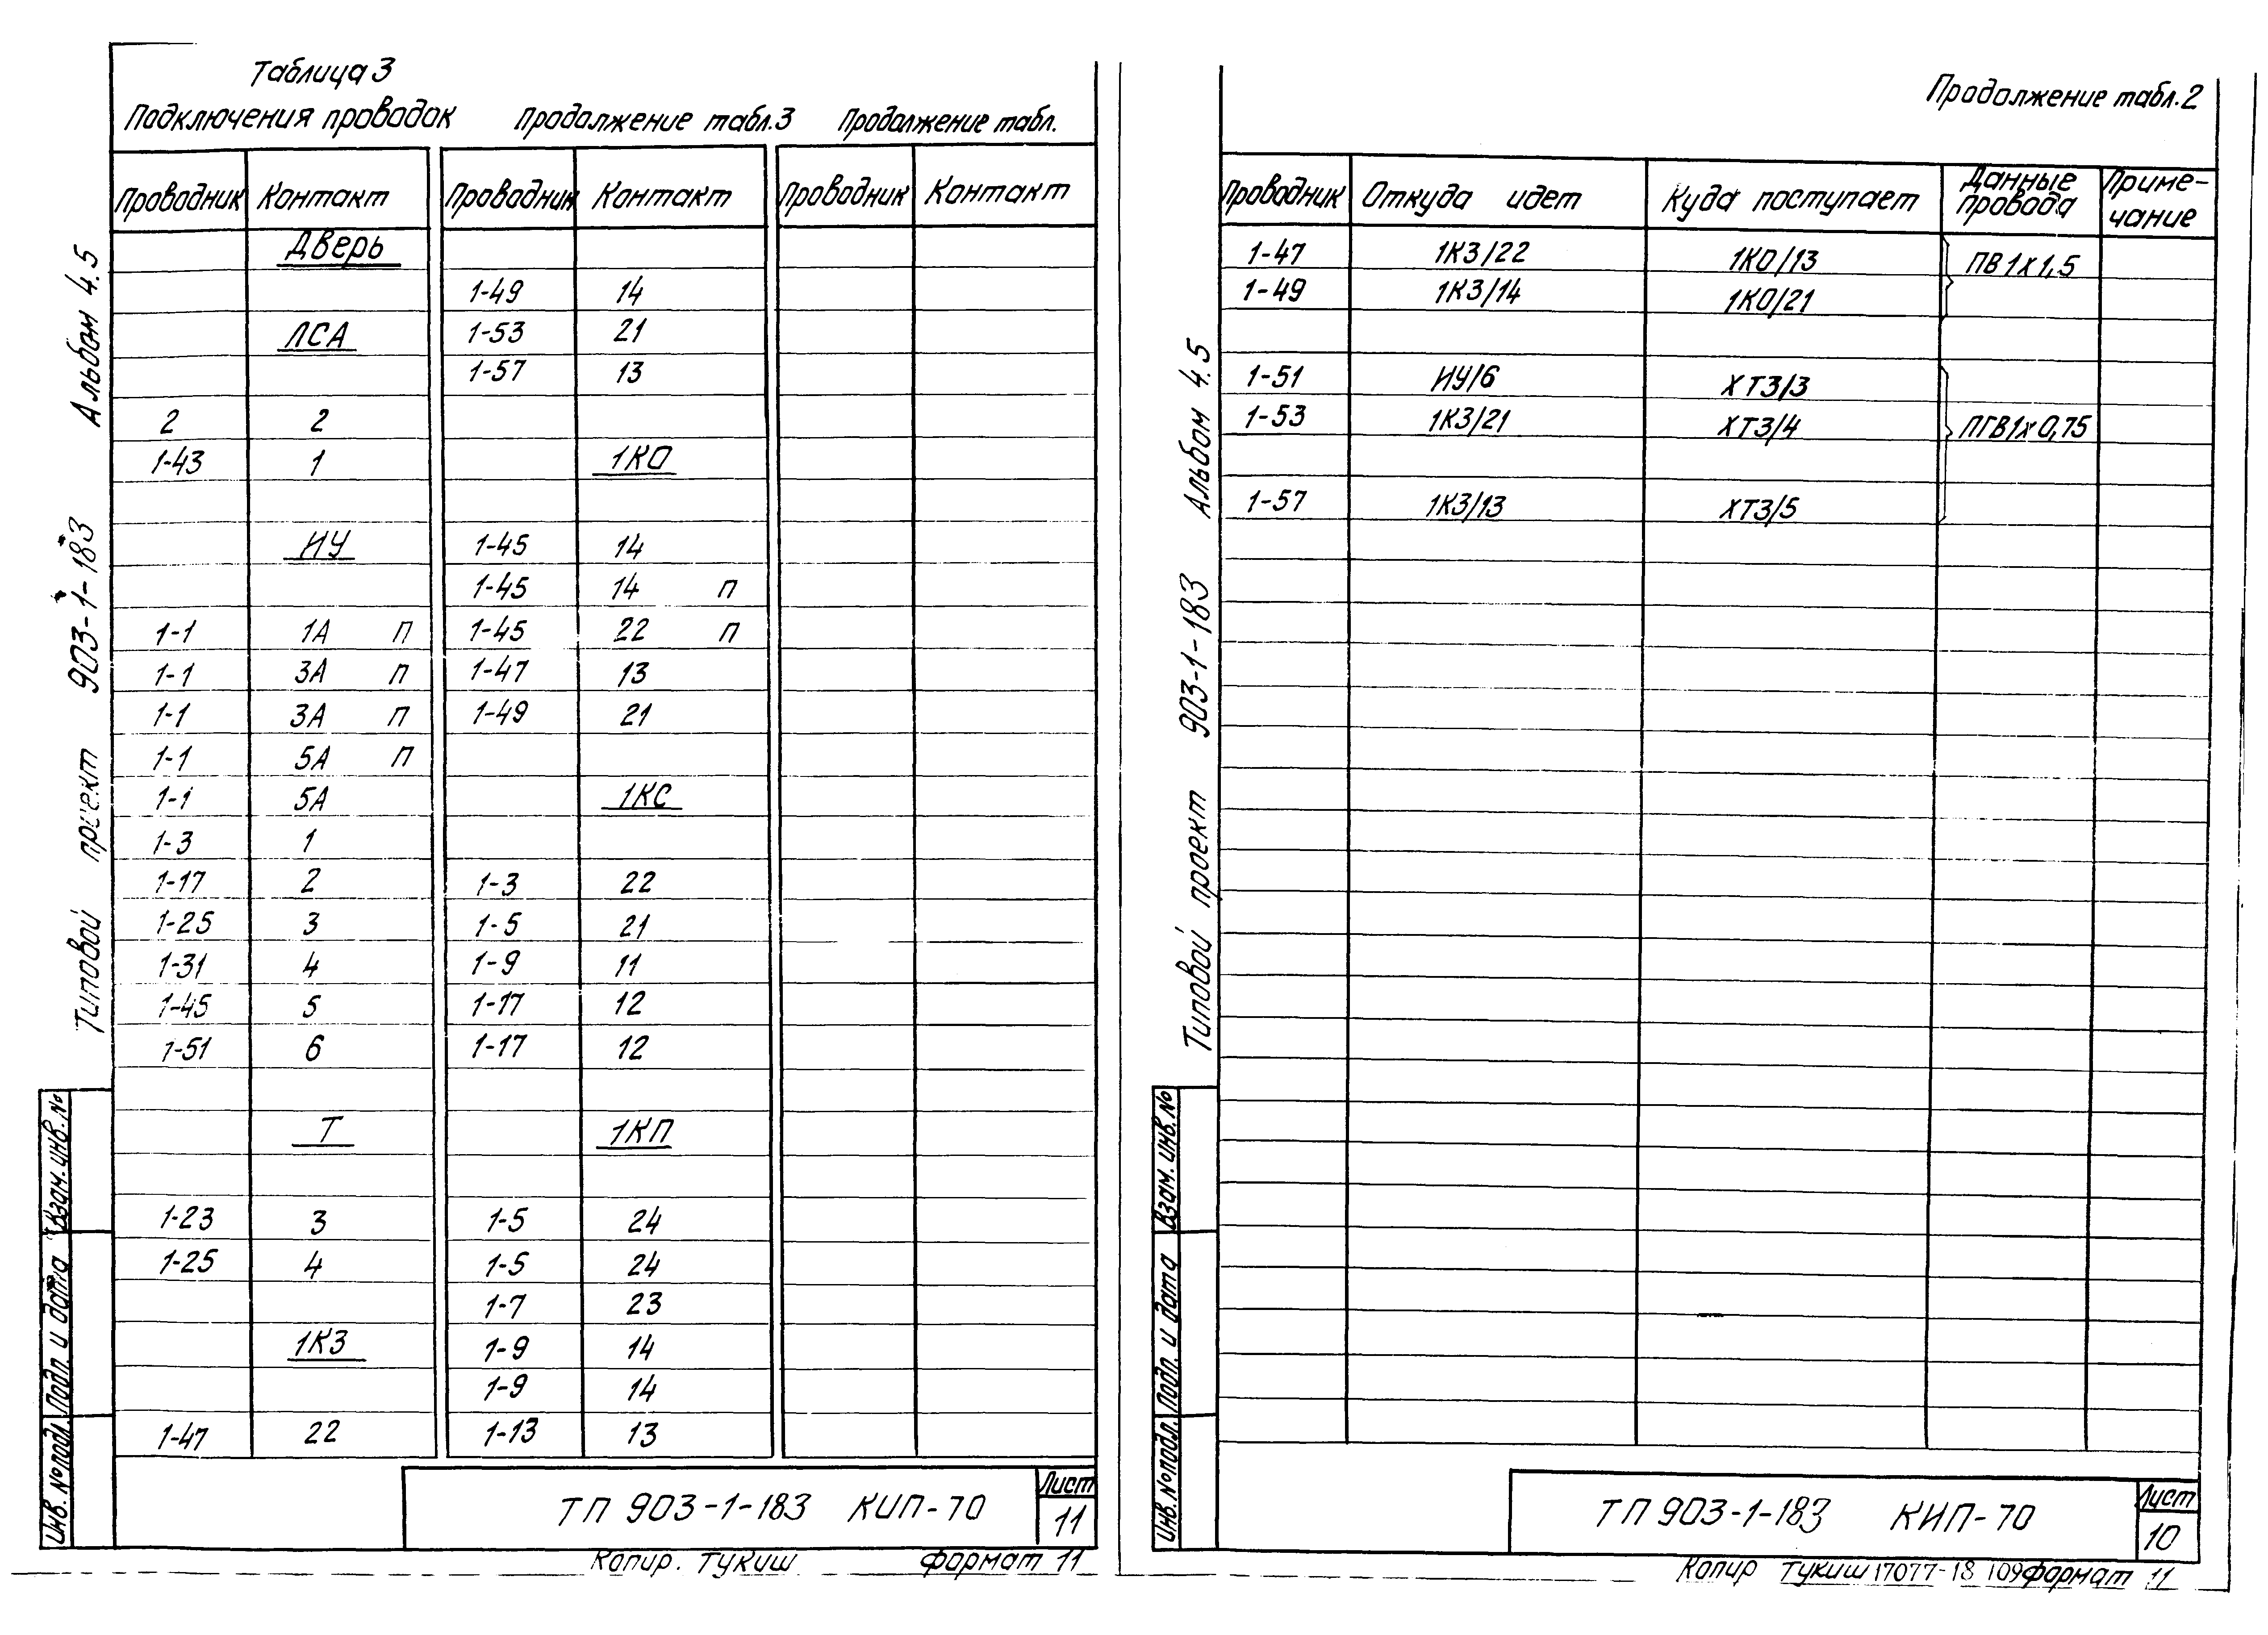 Таблица 3
Подключения проводок
Продолжение табл.3
Продолжение табл.
Проводник Контакт
Дверь
ЛСА
2 2
1-43 1
ИУ
1-1 1А П
1-1 3А П
1-1 3А П
1-1 5А П
1-1 5А
1-3 1
1-17 2
1-25 3
1-31 4
1-45 5
1-51 6
Т
1-23 3
1-25 4
1КЗ
1-47 22
Проводник Контакт
1-49 14
1-53 21
1-57 13
1КО
1-45 14
1-45 14 П
1-45 22 П
1-47 13
1-49 21
1КС
1-3 22
1-5 21
1-9 11
1-17 12
1-17 12
1КП
1-5 24
1-5 24
1-7 23
1-9 14
1-9 14
1-13 13
Проводник Контакт
Альбом 4.5
Типовой проект 903-1-183
Взам. инв. №
Подп. и дата
Инв. № подл.
ТП 903-1-183 КИП-70
Лист
11
Копир. Тукиш формат 11
Продолжение табл.2
Проводник Откуда идет Куда поступает Данные провода Приме-чание
1-47 1КЗ/22 1КО/13 ПВ 1х1,5
1-49 1КЗ/14 1КО/21
1-51 ИУ/6 ХТ3/3
1-53 1КЗ/21 ХТ3/4 ПГВ 1х0,75
1-57 1КЗ/13 ХТ3/5
Альбом 4.5
Типовой проект 903-1-183
Взам. инв. №
Подп. и дата
Инв. № подл.
ТП 903-1-183 КИП-70
Лист
10
Копир Тукиш 17077-18 109 формат 11